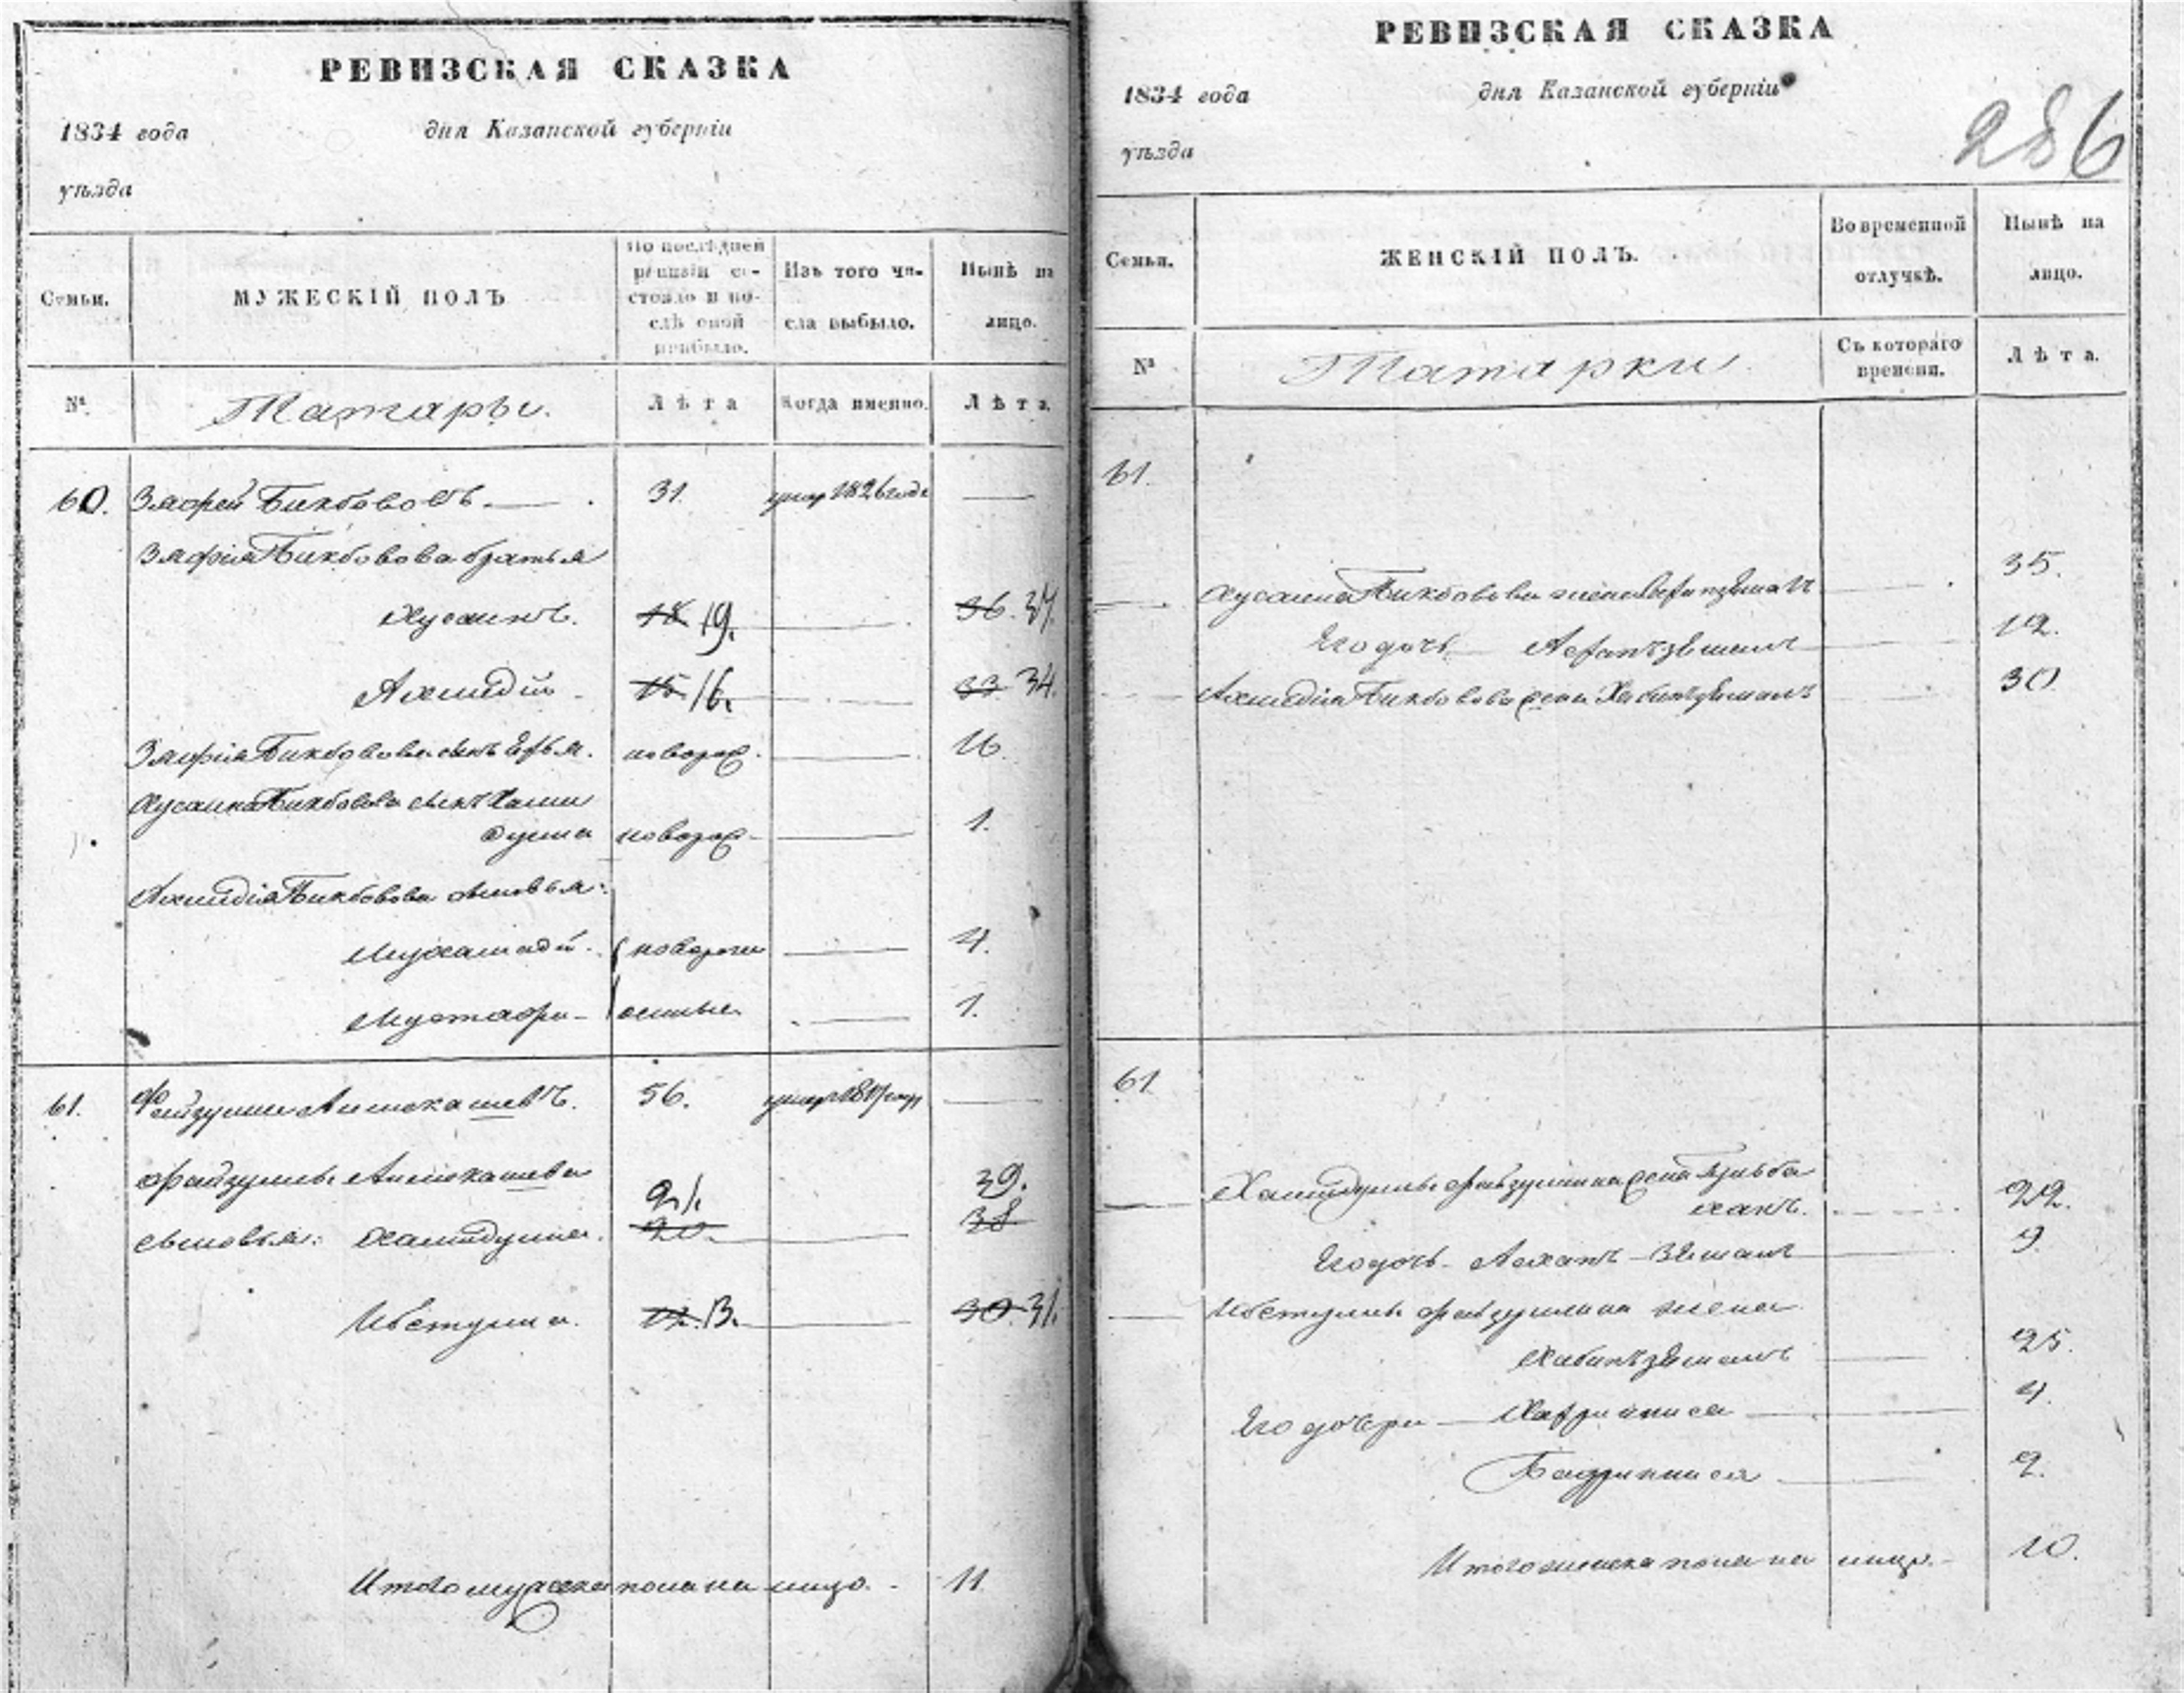 РЕВИЗСКАЯ СКАЗКА
1834 года дня Казанской губерніи
уѣзда
Семьи. МУЖЕСКІЙ ПОЛЪ По послѣдней ревизіи состояло и послѣ оной прибыло. Изъ того числа выбыло. Нынѣ на лицо.
№ Татары. Лѣта Когда именно. Лѣта.
60. Зяфрей Бикбововъ. 31. умер 1826 года
Зяфрія Бикбовова братья
Хусаинъ. 18 19. 36. 37.
Ахмидій 15 16. 33 34.
Зяфрія Бикбовова сынъ новорож. 16.
Хусаина Бикбовова сынъ Хами
дулла новорож. 1.
Ахмидія Бикбовова сыновья:
Мухамадій новорож 4.
Мустафа денные 1.
61. Файзулла 56. умер 18 году
Файзуллы
21. 39.
сыновья: Хамидулла. 20. 38
12. 13. 30. 31.
Итого мужеска пола на лицо. 11.
РЕВИЗСКАЯ СКАЗКА
1834 года дня Казанской губерніи
уѣзда
286
Семьи. ЖЕНСКІЙ ПОЛЪ. Во временной отлучкѣ. Нынѣ на лицо.
№ Татарки Съ котораго времени. Лѣта.
61.
Хусаина Бикбовова жена 35.
Его дочь 12.
Ахмидія Бикбовова жена Хабинзямалъ 30
61
Хамидуллы Файзуллина жена Гульба
ханъ. 22.
Его дочь 9
Файзуллина жена
Хабинъзямалъ 25.
Его дочери 4.
Бадриниса 2.
Итого женска пола на лицо. 10.